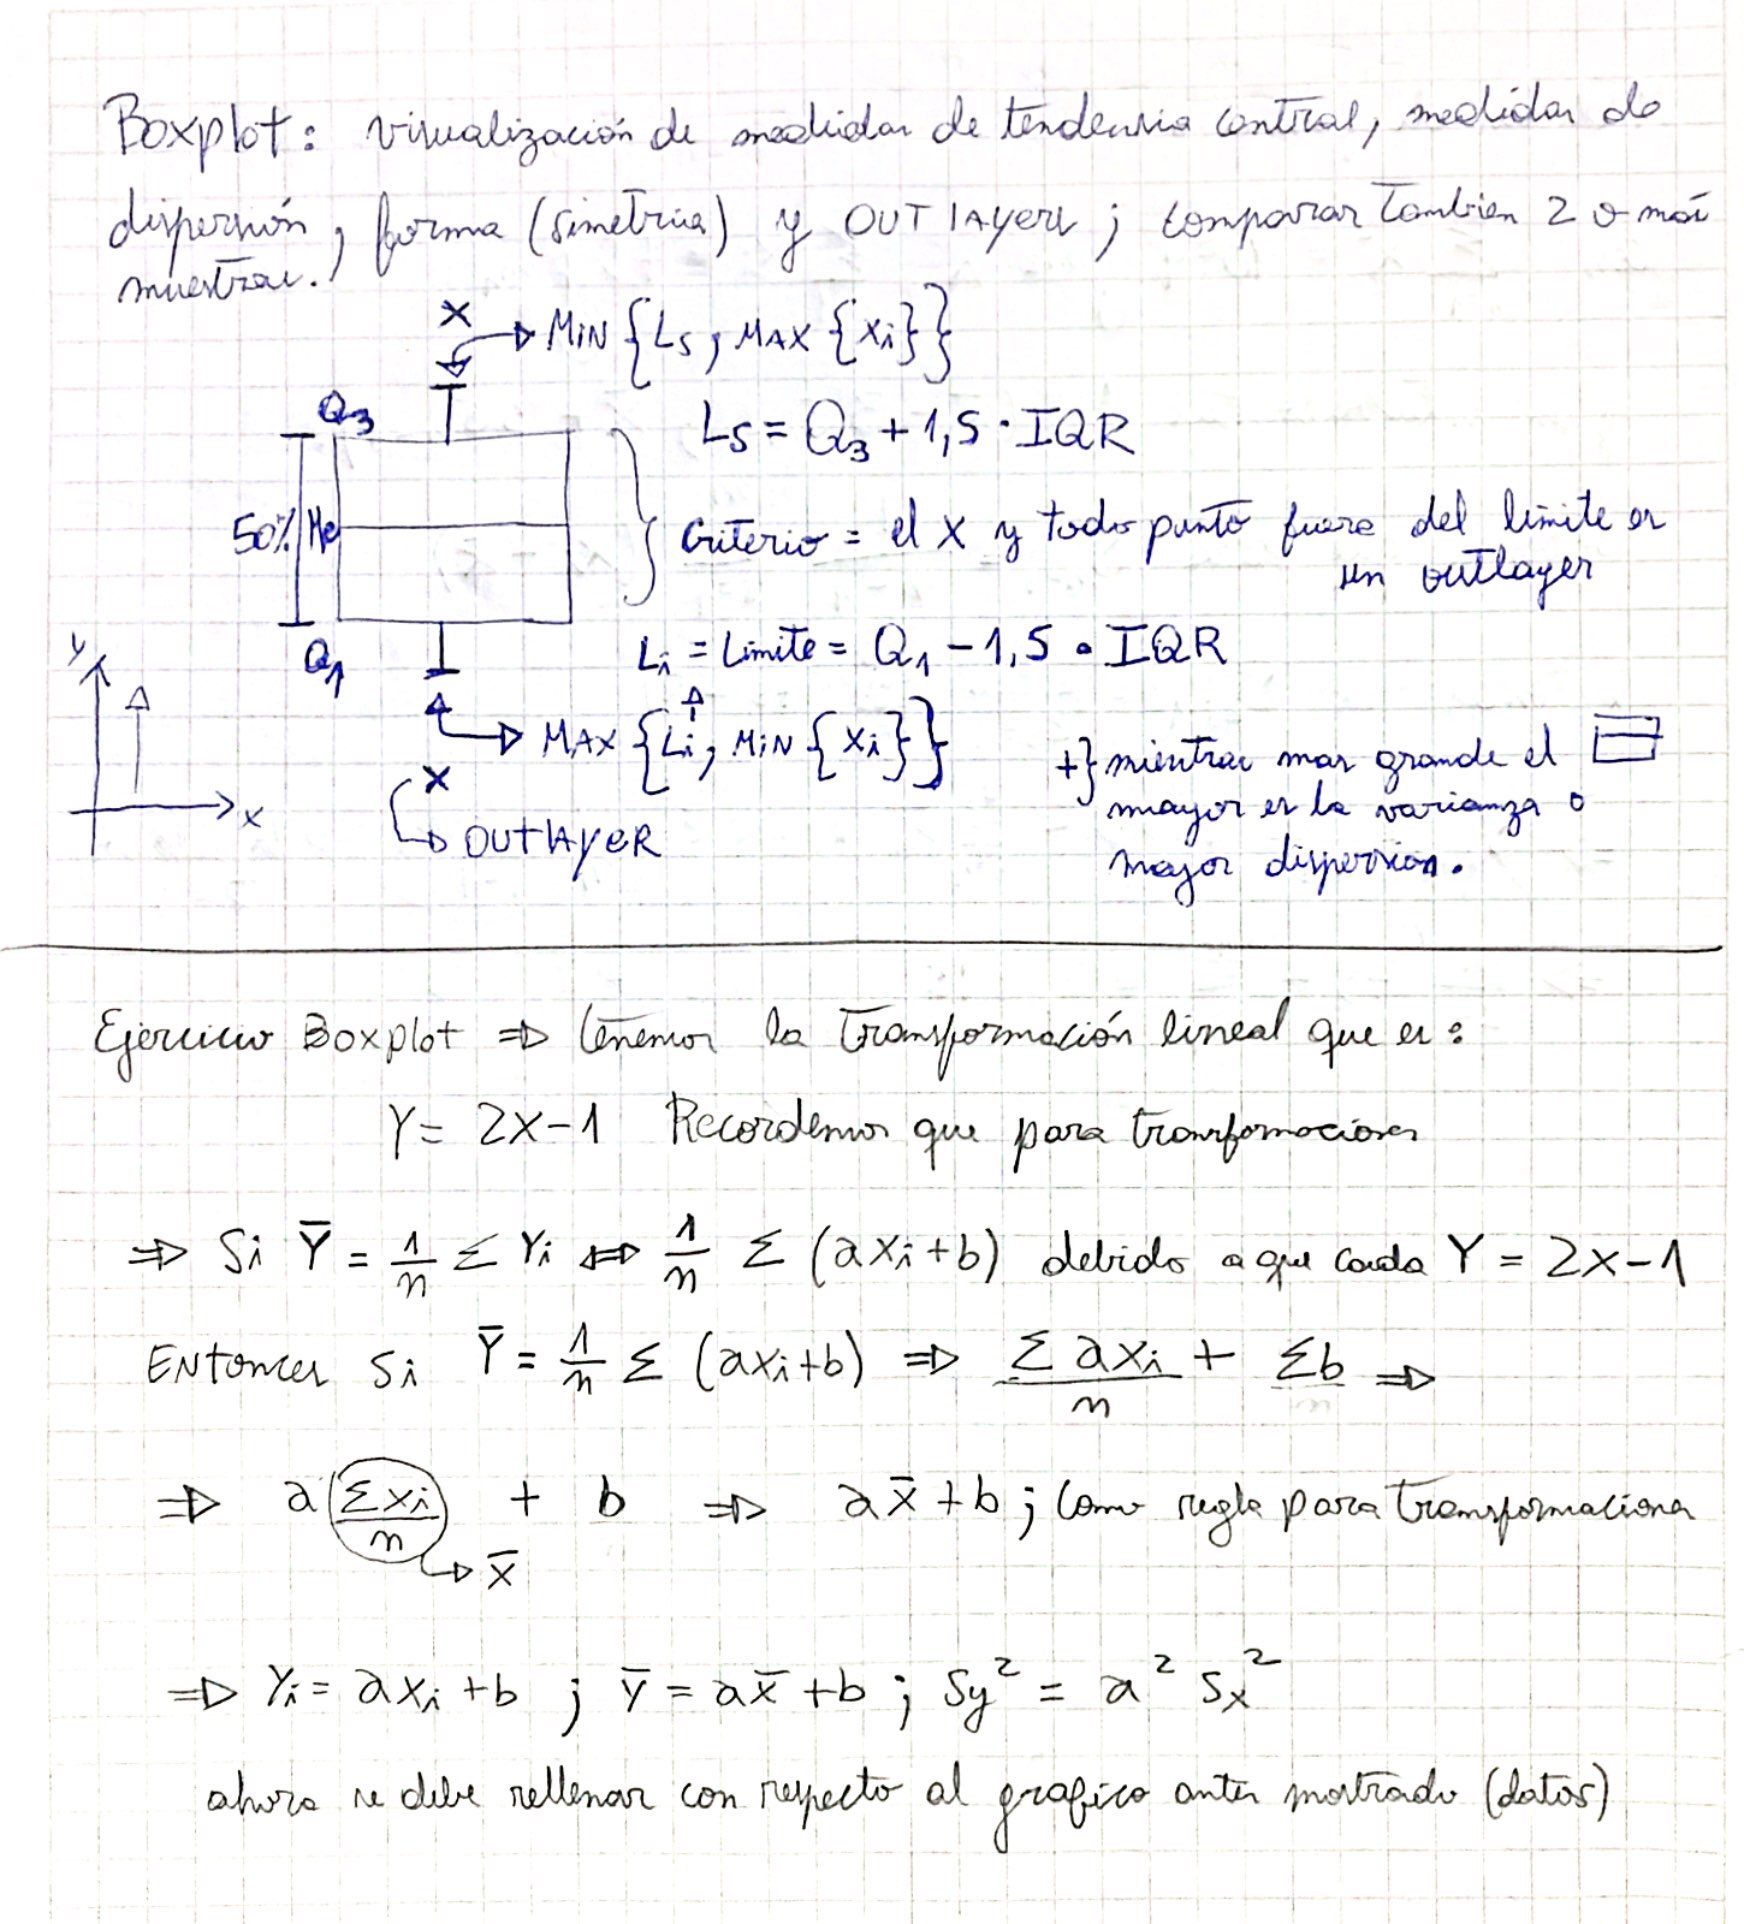 Boxplot: visualización de medidas de tendencia central, medidas de
dispersión, forma (simetria) y OUTLAYERS; comparar tambien 2 o más
muestras.
X
MIN {Ls, MAX {xi}}
Q3
Ls = Q3 + 1,5 · IQR
50% Me
Criterio = el X y todo punto fuera del limite es
un outlayer
Q1
Li = Limite = Q1 - 1,5 · IQR
y
x
MAX {Li, MIN {xi}}
X
OUTLAYER
+} mientras mas grande el
mayor es la varianza o
mayor dispersion.
Ejercicio Boxplot ⇒ tenemos la transformación lineal que es:
Y = 2X-1 Recordemos que para transformaciones
⇒ Si Ȳ = 1/n Σ Yi ⇔ 1/n Σ (axi+b) debido a que cada Y = 2X-1
Entonces si Ȳ = 1/n Σ (axi+b) ⇒ Σaxi/n + Σb/n ⇒
⇒ a (Σxi/n) + b ⇒ ax̄+b; como regla para transformaciones
x̄
⇒ Yi = axi+b ; ȳ = ax̄+b ; Sy² = a² Sx²
ahora se debe rellenar con respecto al grafico antes mostrado (datos)